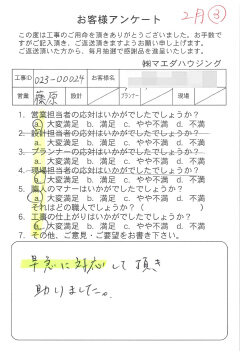 2月③
お客様アンケート
この度は工事のご用命を頂きありがとうございました。お手数で
すがご記入頂き、ご返送頂きますようお願い申し上げます。
ご返送頂いた方から、毎月抽選で感謝品を進呈いたします。
㈱マエダハウジング
工事ID 023-00024 お客様名
営業 藤原 設計 プランナー 現場
1. 営業担当者の応対はいかがでしたでしょうか?
a. 大変満足 b. 満足 c. やや不満 d. 不満
2. 設計担当者の応対はいかがでしたでしょうか?
a. 大変満足 b. 満足 c. やや不満 d. 不満
3. プランナーの応対はいかがでしたでしょうか?
a. 大変満足 b. 満足 c. やや不満 d. 不満
4. 現場担当者の応対はいかがでしたでしょうか?
a. 大変満足 b. 満足 c. やや不満 d. 不満
5. 職人のマナーはいかがでしたでしょうか?
a. 大変満足 b. 満足 c. やや不満 d. 不満
それはどの職人でしょうか?( )
6. 工事の仕上がりはいかがでしたでしょうか?
a. 大変満足 b. 満足 c. やや不満 d. 不満
7. その他、ご意見・ご要望をお書き下さい。
早急に対応して頂き
助りました。